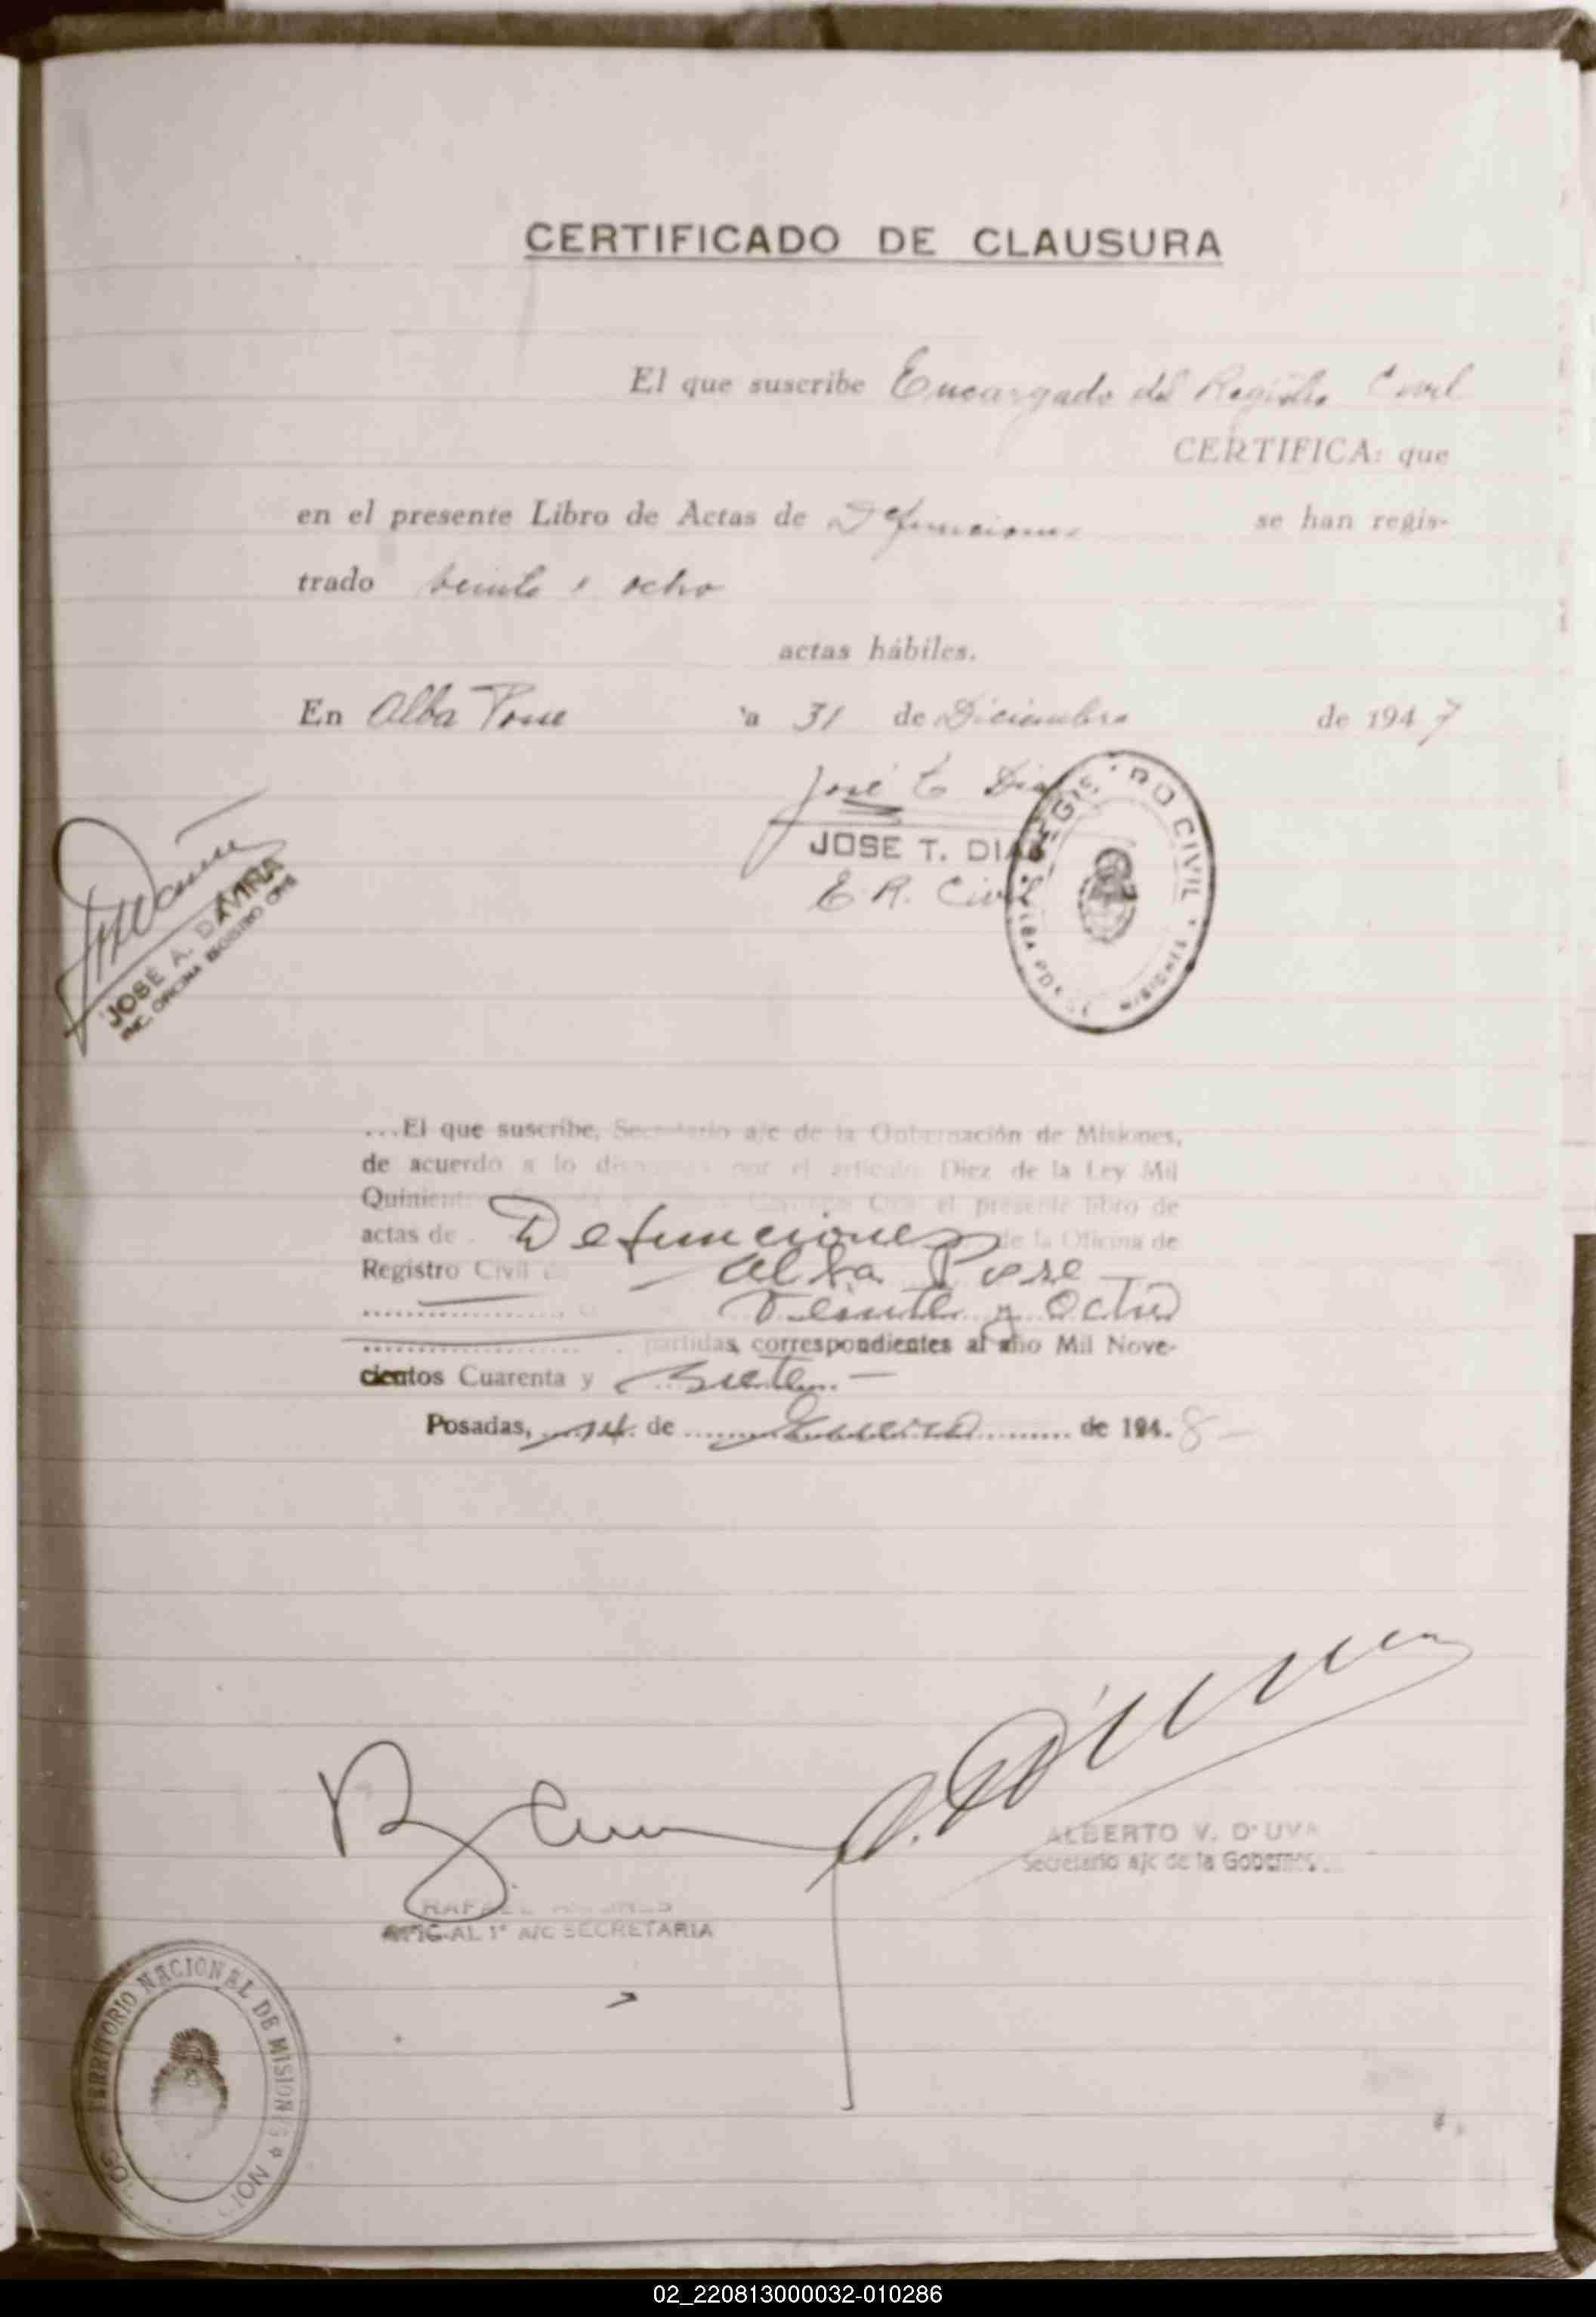 CERTIFICADO DE CLAUSURA
El que suscribe Encargado del Registro Civil
CERTIFICA: que
en el presente Libro de Actas de Defunciones se han regis-
trado veinte y ocho
actas hábiles.
En Alba Posse a 31 de Diciembre de 1947
José T Diaz
JOSE T. DIAZ
E. R. Civil
REGISTRO CIVIL
ALBA POSSE MISIONES
JOSE A. DAVIÑA
ENC. OFICINA REGISTRO CIVIL
...El que suscribe, Secretario a/c de la Gobernación de Misiones,
de acuerdo a lo dispuesto por el artículo Diez de la Ley Mil
Quinientos el presente libro de
actas de Defunciones de la Oficina de
Registro Civil de Alba Pose
Veinte y Ocho
partidas correspondientes al año Mil Nove-
cientos Cuarenta y Siete.—
Posadas, 14 de Enero de 1948—
ALBERTO V. D'UVA
Secretario a/c de la Gobernación
RAFAEL
OFICIAL 1° A/C SECRETARIA
TERRITORIO NACIONAL DE MISIONES
02_220813000032-010286